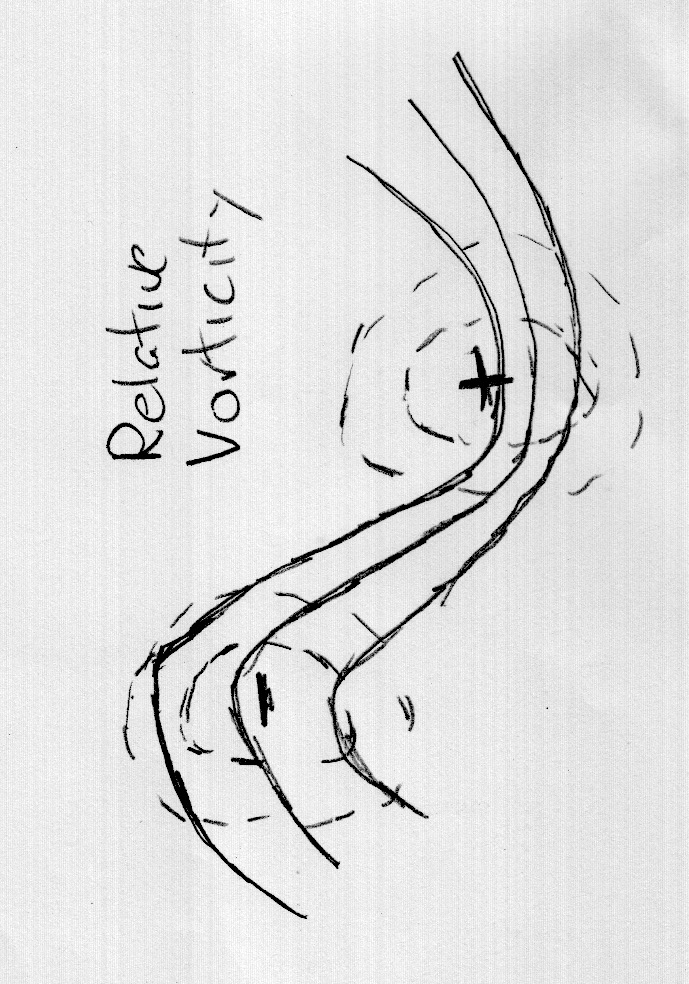 Relative
Vorticity
+
-